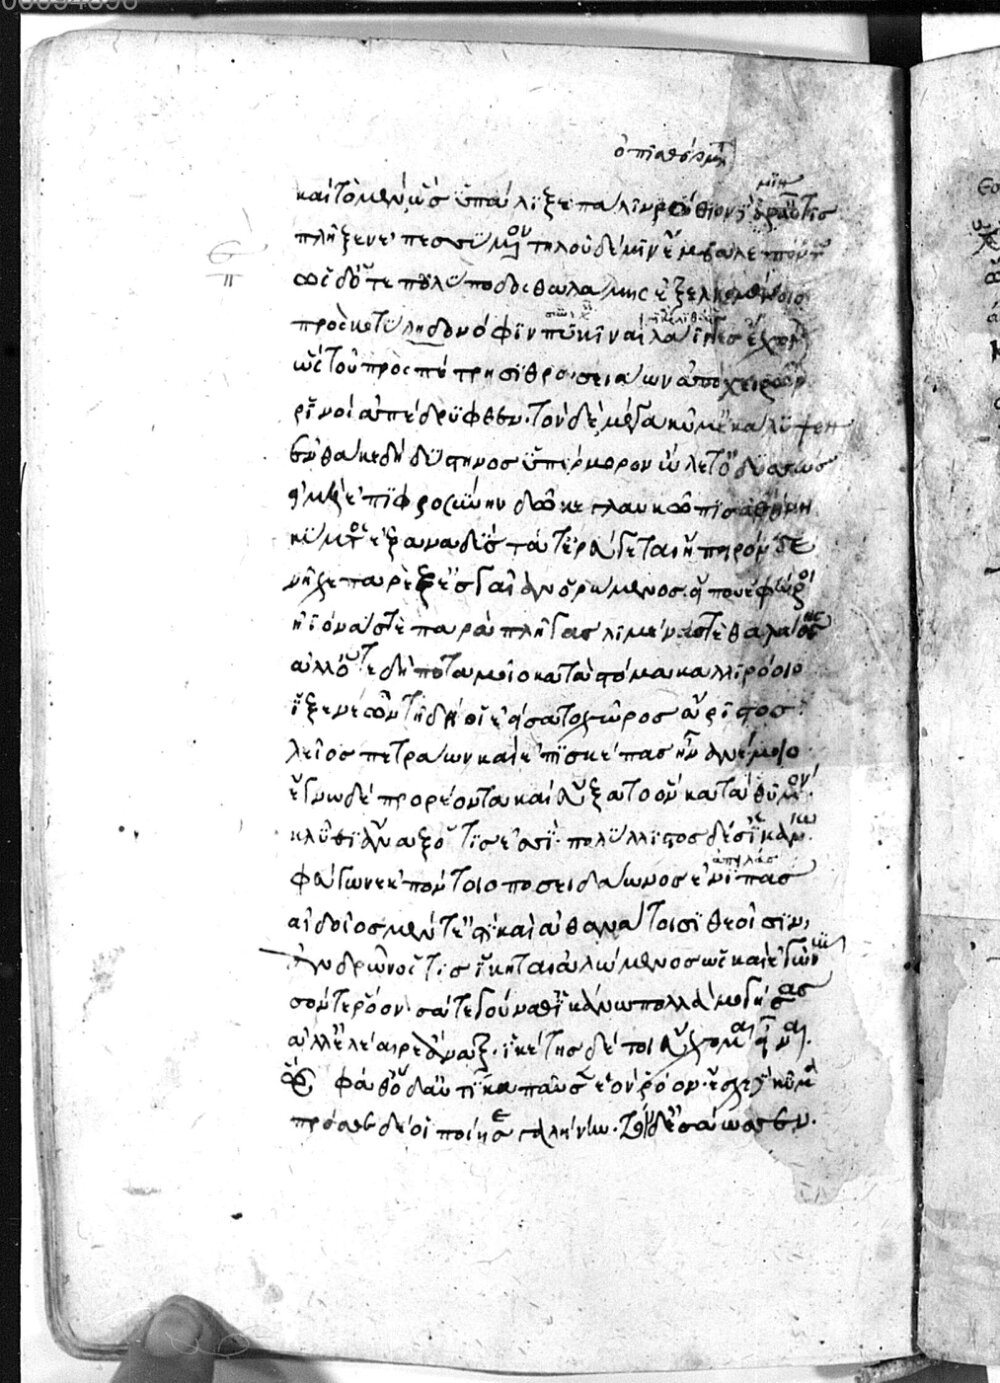 καὶ τὸ μὲν ὧς ὑπάλυξε παλιῤῥόθιον δέ μιν αὖτις
πλῆξεν ἐπεσσύμενον τηλοῦ δέ μιν ἔμβαλε πόντῳ
ὡς δ' ὅτε πολύποδος θαλάμης ἐξελκομένοιο
πρὸς κοτυληδονόφιν πυκιναὶ λάϊγγες ἔχονται
ὡς τοῦ πρὸς πέτρῃσι θρασειάων ἀπὸ χειρῶν
ῥινοὶ ἀπέδρυφθεν. τὸν δὲ μέγα κῦμα κάλυψεν
ἔνθα κε δὴ δύστηνος ὑπέρμορον ὤλετ' ὀδυσσεὺς
εἰ μὴ ἐπιφροσύνην δῶκε γλαυκῶπις ἀθήνη
κύματος ἐξαναδὺς τά τ' ἐρεύγεται ἤπειρον δὲ
νῆχε παρὲξ ἐς γαῖαν ὁρώμενος εἴ που ἐφεύροι
ἠϊόνας τὲ παραπλῆγας λιμένας τὲ θαλάσσης
ἀλλ' ὅτε δὴ ποταμοῖο κατὰ στόμα καλλιρόοιο
ἷξε νέων τῇ δή οἱ ἐείσατο χῶρος ἄριστος
λεῖος πετράων καὶ ἐπὶ σκέπας ἦν ἀνέμοιο
ἔγνω δὲ προρέοντα καὶ εὔξατο ὃν κατὰ θυμόν.
κλῦθι ἄναξ ὅτις ἐσσί· πολύλλιστον δέ σ' ἱκάνω
φεύγων ἐκ πόντοιο ποσειδάωνος ἐνιπάς
αἰδοῖος μέν τ' ἐστὶ καὶ ἀθανάτοισι θεοῖσιν,
ἀνδρῶν ὅστις ἵκηται ἀλώμενος ὡς καὶ ἐγὼ νῦν
σόν τε ῥόον σά τε γούναθ' ἱκάνω πολλὰ μογήσας
ἀλλ' ἐλέαιρε ἄναξ. ἱκέτης δέ τοι εὔχομαι εἶναι.
ὣς φάθ' ὁ δ' αὐτίκα παῦσεν ἑὸν ῥόον. ἔσχε δὲ κῦμα
πρόσθε δέ οἱ ποίησε γαλήνην. τὸν δ' ἐσάωσεν.